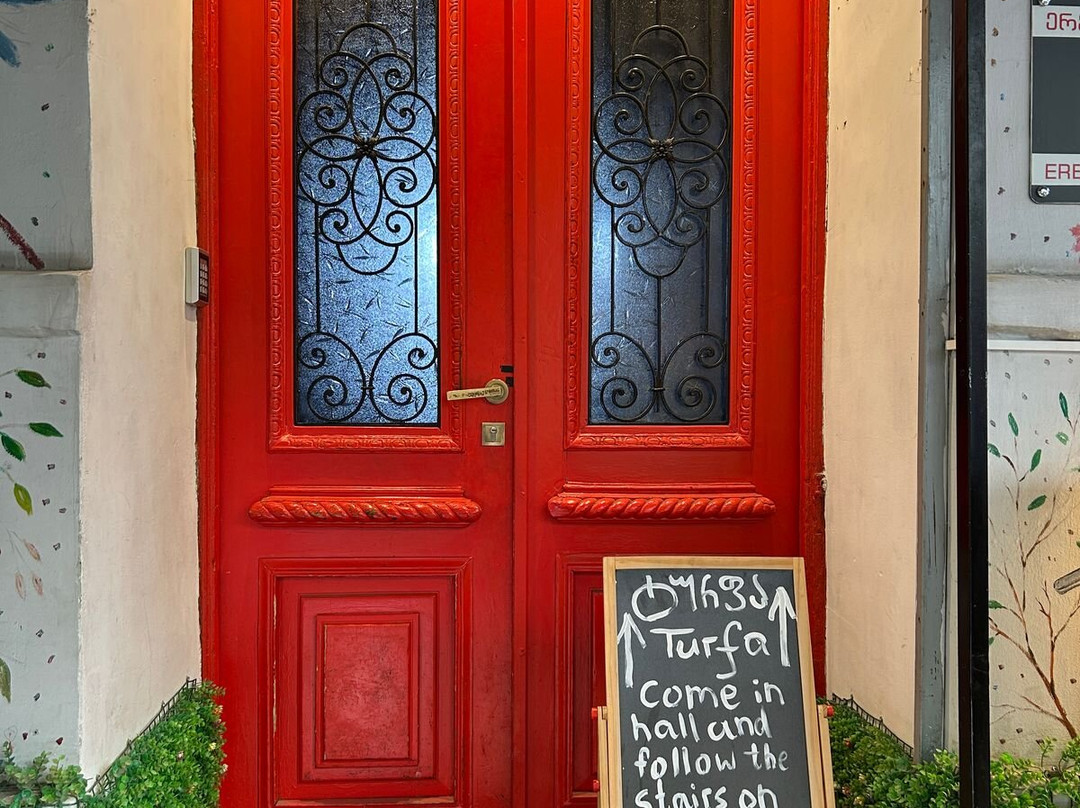 ტურფა
Turfa
come in
hall and
follow the
stairs on